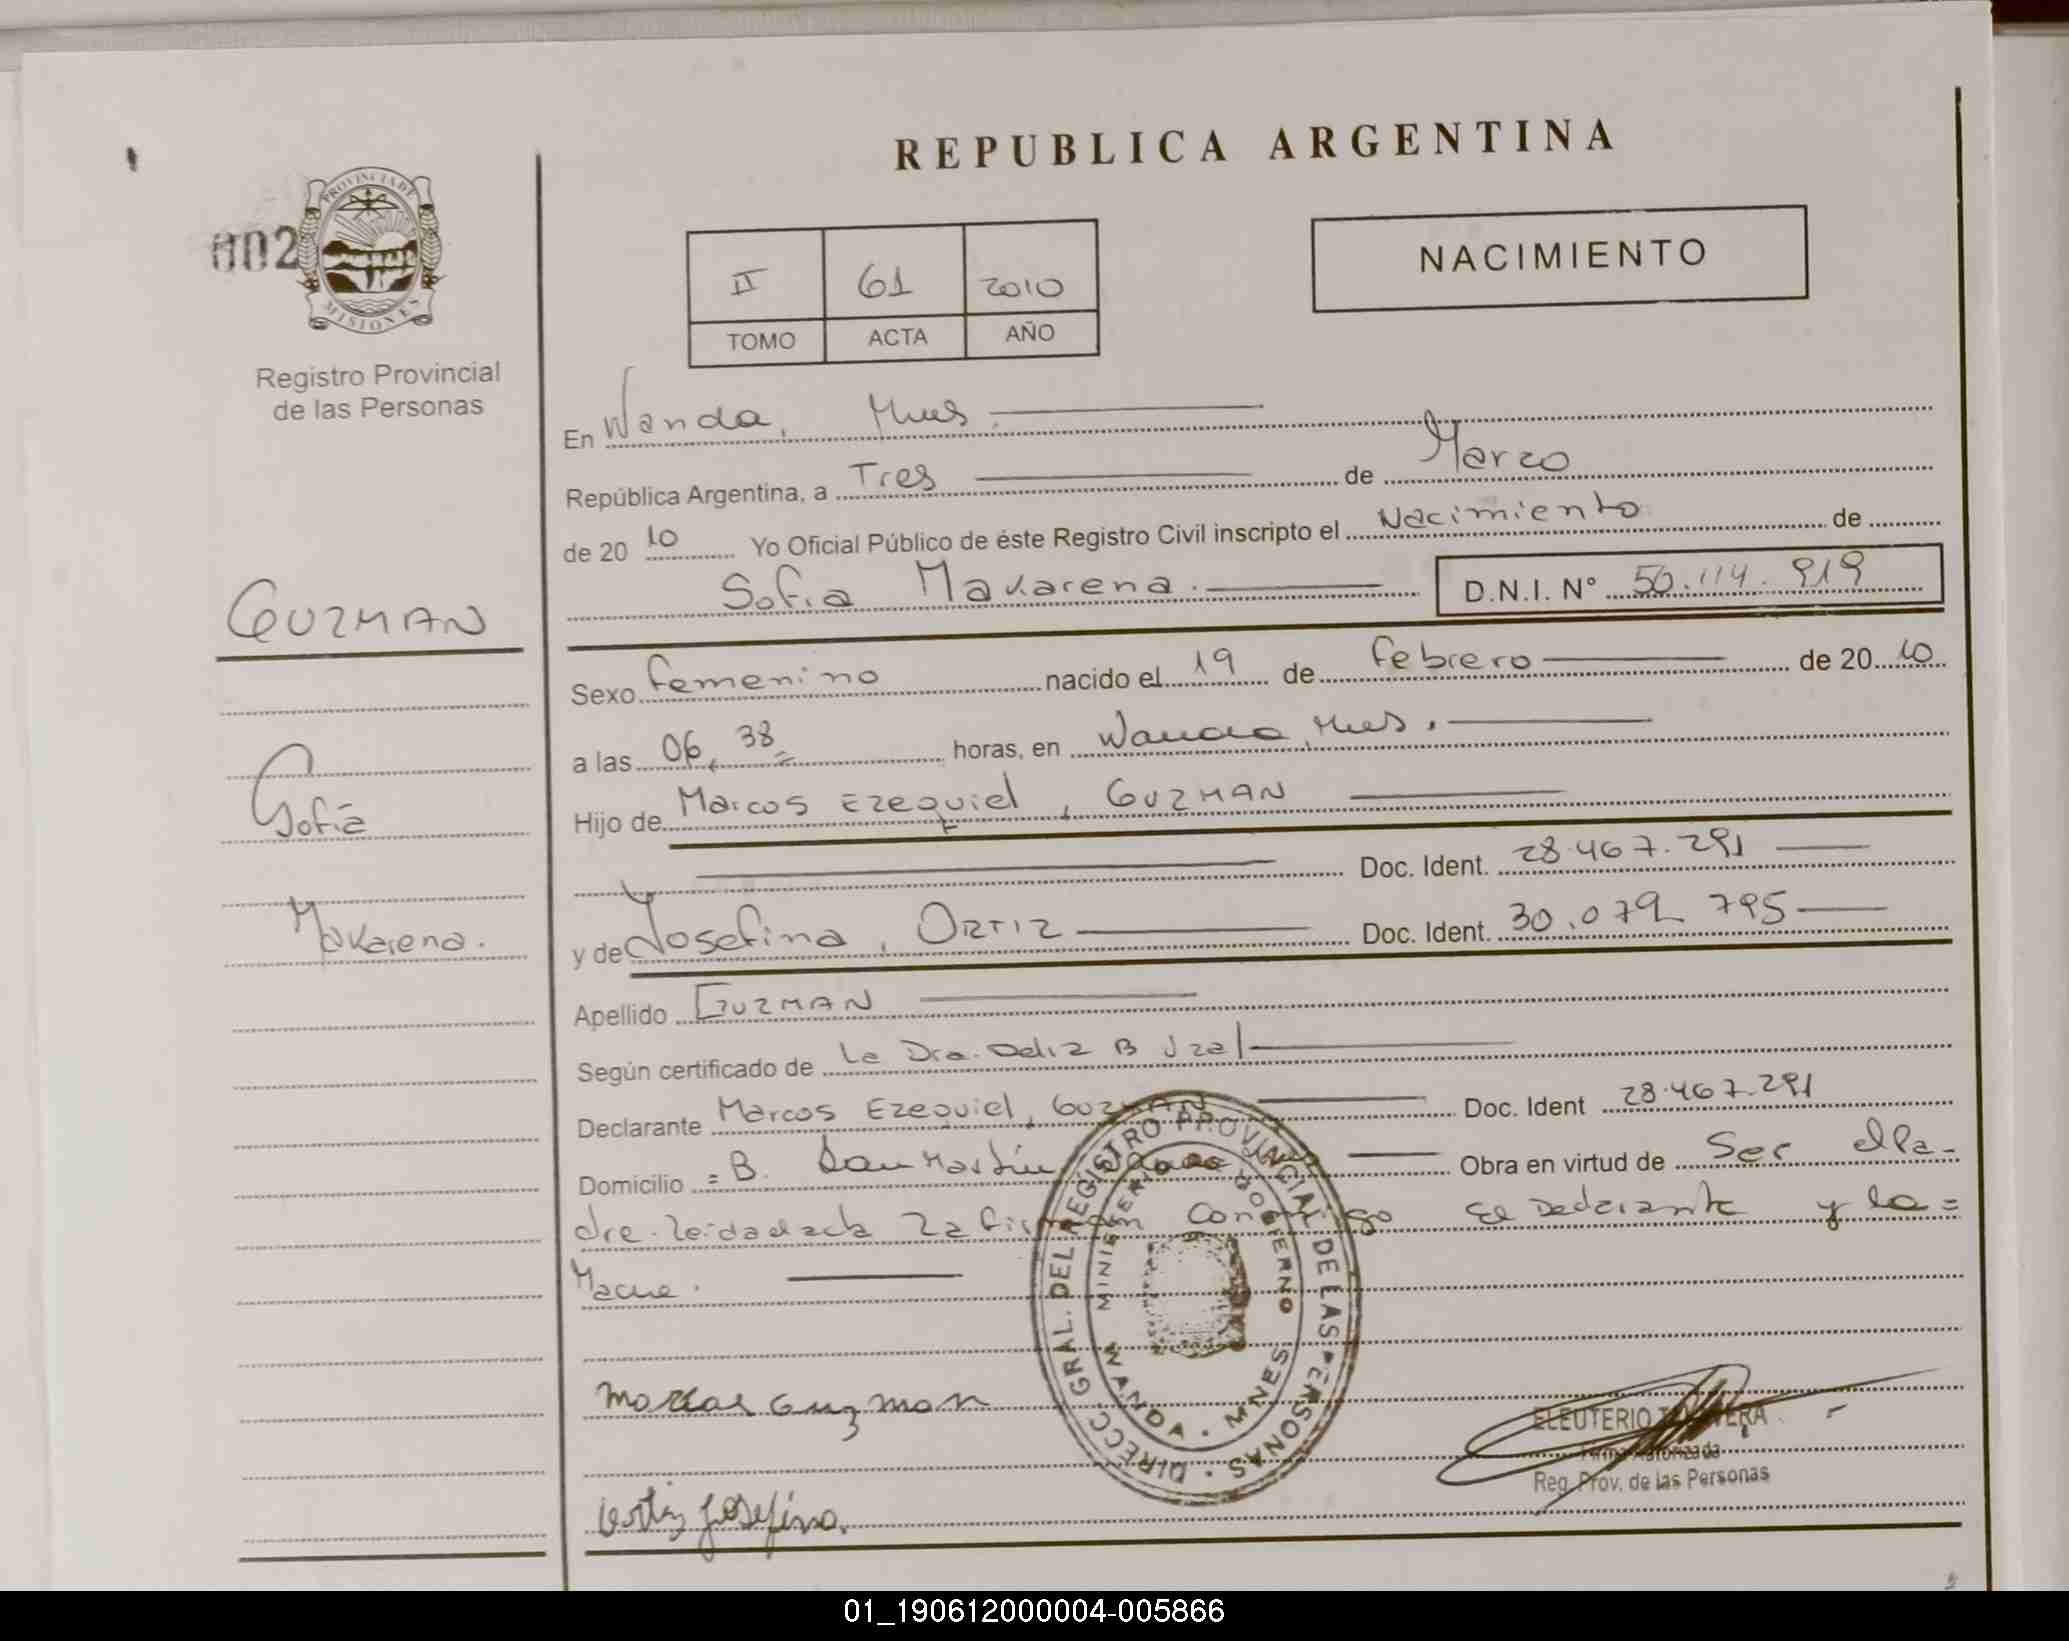 REPUBLICA ARGENTINA
002
PROVINCIA DE
MISIONES
Registro Provincial
de las Personas
II 61 2010
TOMO ACTA AÑO
NACIMIENTO
En Wanda, Mnes.
República Argentina, a Tres de Marzo
de 20 10 Yo Oficial Público de éste Registro Civil inscripto el Nacimiento de
Sofia Makarena. D.N.I. N° 50.114.919
GUZMAN
Sofia
Makarena.
Sexo femenino nacido el 19 de febrero de 20 10
a las 06,38 horas, en Wanda, Mnes.
Hijo de Marcos Ezequiel, GUZMAN
Doc. Ident. 28.467.291
y de Josefina, ORTIZ Doc. Ident. 30.079.795
Apellido GUZMAN
Según certificado de La Dra.
Declarante Marcos Ezequiel, GUZMAN Doc. Ident 28.467.291
Domicilio = B. San Martín, Wanda Obra en virtud de Ser el Pa-
dre. Leida el acta La firman Conmigo El Declarante y la =
Madre.
DIRECC. GRAL. DEL REGISTRO PROVINCIAL DE LAS PERSONAS
MINISTERIO DE GOBIERNO
WANDA - MNES
Marcos Guzman
ELEUTERIO TALAVERA
Firma Autorizada
Reg. Prov. de las Personas
Ortiz Josefina.
01_190612000004-005866